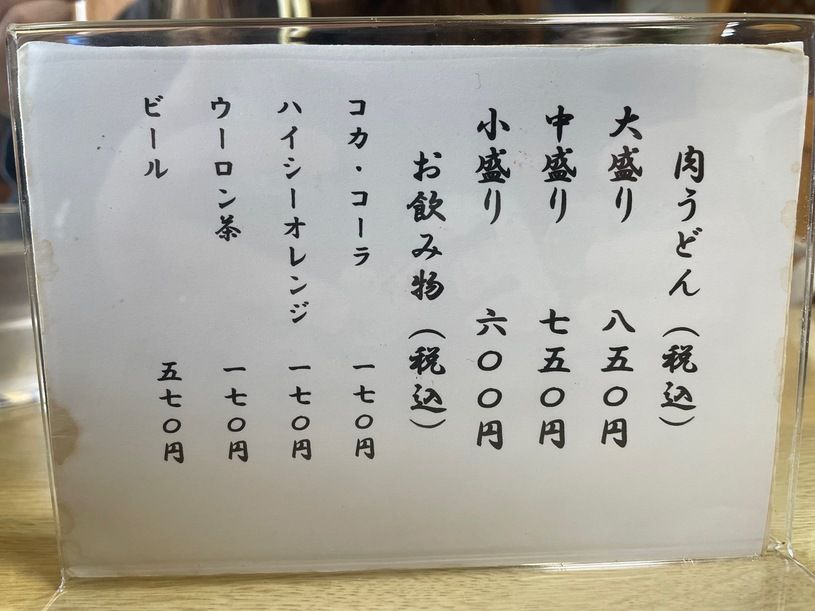 肉うどん（税込）
大盛り 八五〇円
中盛り 七五〇円
小盛り 六〇〇円
お飲み物（税込）
コカ・コーラ 一七〇円
ハイシーオレンジ 一七〇円
ウーロン茶 一七〇円
ビール 五七〇円